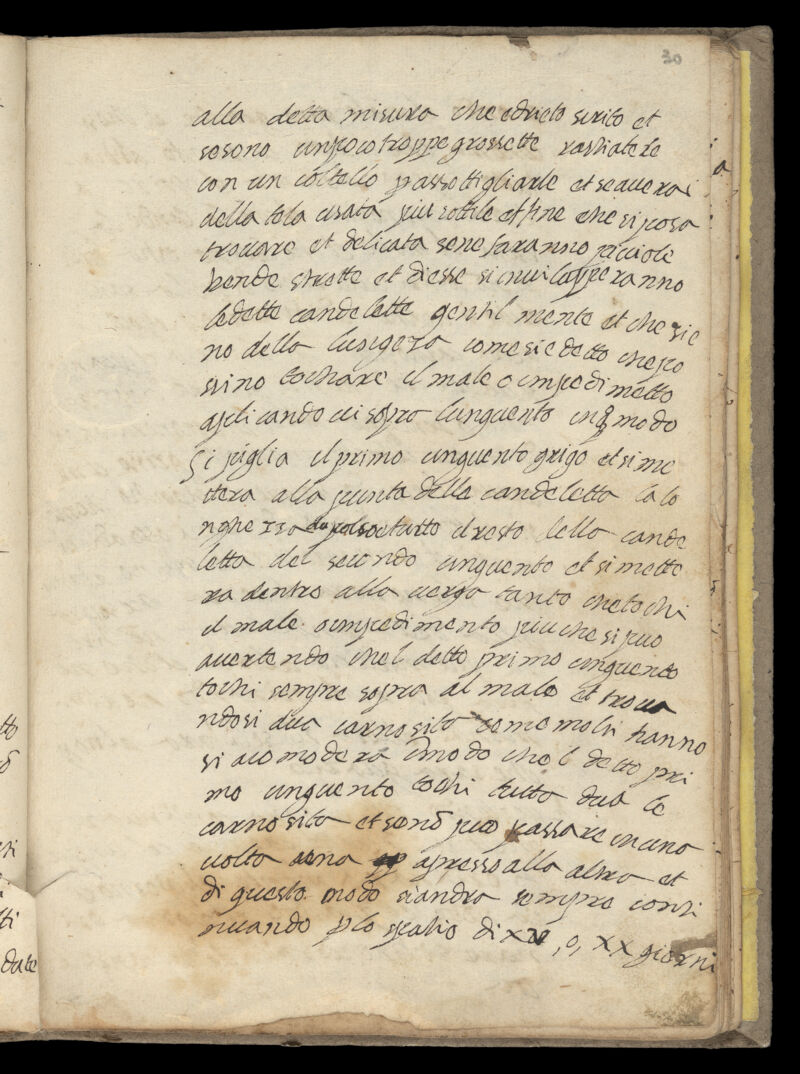 30
alla detta misura che edrieto scrito et
se sono unpoco troppe grossette rashiatele
con un coltello p assottigliarle et se averai
della tela usata piu sottile et fine che si posa
trovare et delicata sene faranno picciole
bende strette et diesse si inviluperanno
le dette candelette gentil mente et che sie
no della lungeza come sie detto che po
ssino tochare il male o impedimetto
aplicando vi sopra lunguento in q modo
Si piglia il primo unguento grigo et si me
ttera alla punta della candeletta la lo
ngheza et tutto il resto della cande
letta del secondo unguento et si mette
ra dentro alla verga tanto che tochi
il male o impedimento piu che si puo
avertendo chel detto primo unguento
tochi sempre sopra al male et trova
ndosi dua carnosita come molti hanno
si acomodera imodo chel detto pri
mo unguento tochi tutta dua le
carnosita et se nō puo passare in una
volta una apresso alla altra et
di questo modo siandra sempre conti
nuando p lo spatio di , o, xx giorni